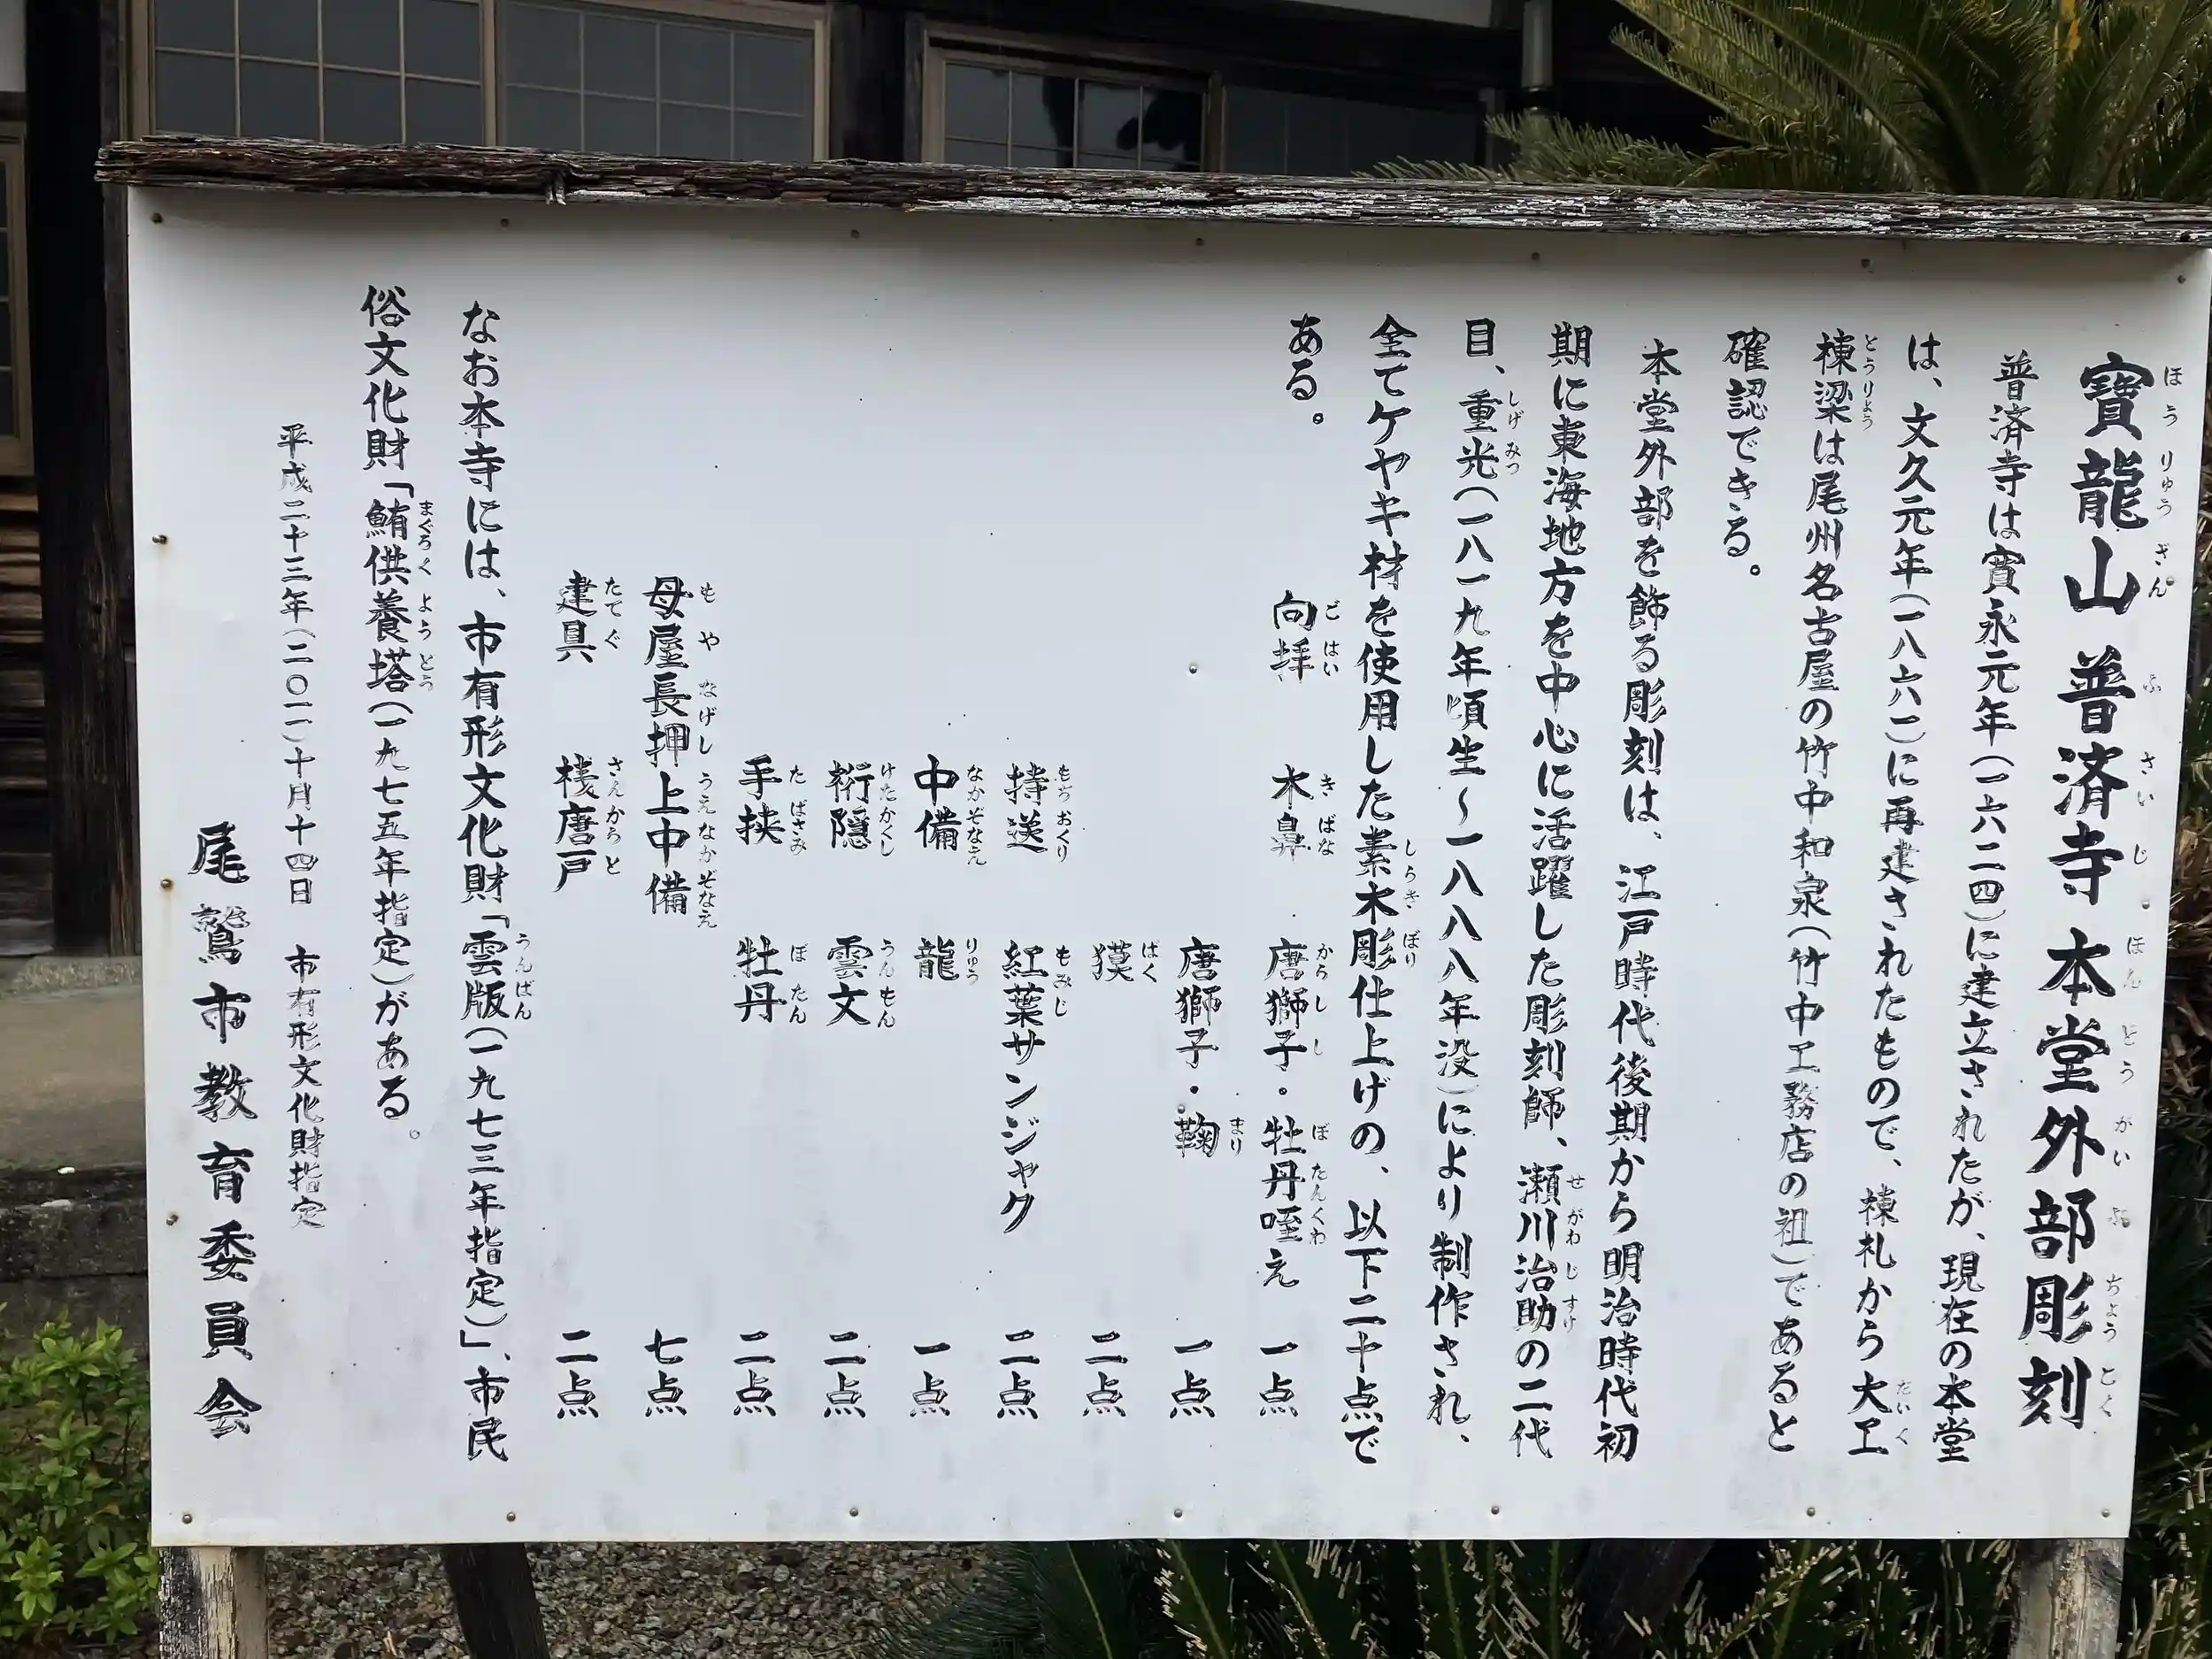 寳龍山 普済寺 本堂外部彫刻
普済寺は寳永元年(一六二四)に建立されたが、現在の本堂
は、文久元年(一八六一)に再建されたもので、棟札から大工
棟梁は尾州名古屋の竹中和泉(竹中工務店の祖)であると
確認できる。
本堂外部を飾る彫刻は、江戸時代後期から明治時代初
期に東海地方を中心に活躍した彫刻師、瀬川治助の二代
目、重光(一八一九年頃生～一八八八年没)により制作され、
全てケヤキ材を使用した素木彫仕上げの、以下二十点で
ある。
向拝 木鼻 唐獅子・牡丹咥え 一点
唐獅子・鞠 一点
獏 二点
持送 紅葉サンジャク 二点
中備 龍 一点
桁隠 雲文 二点
手挟 牡丹 二点
母屋長押上中備 七点
建具 桟唐戸 二点
なお本寺には、市有形文化財「雲版(一九七三年指定)」、市民
俗文化財「鮪供養塔(一九七五年指定)がある。
平成二十三年(二〇一一)十月十四日 市有形文化財指定
尾鷲市教育委員会